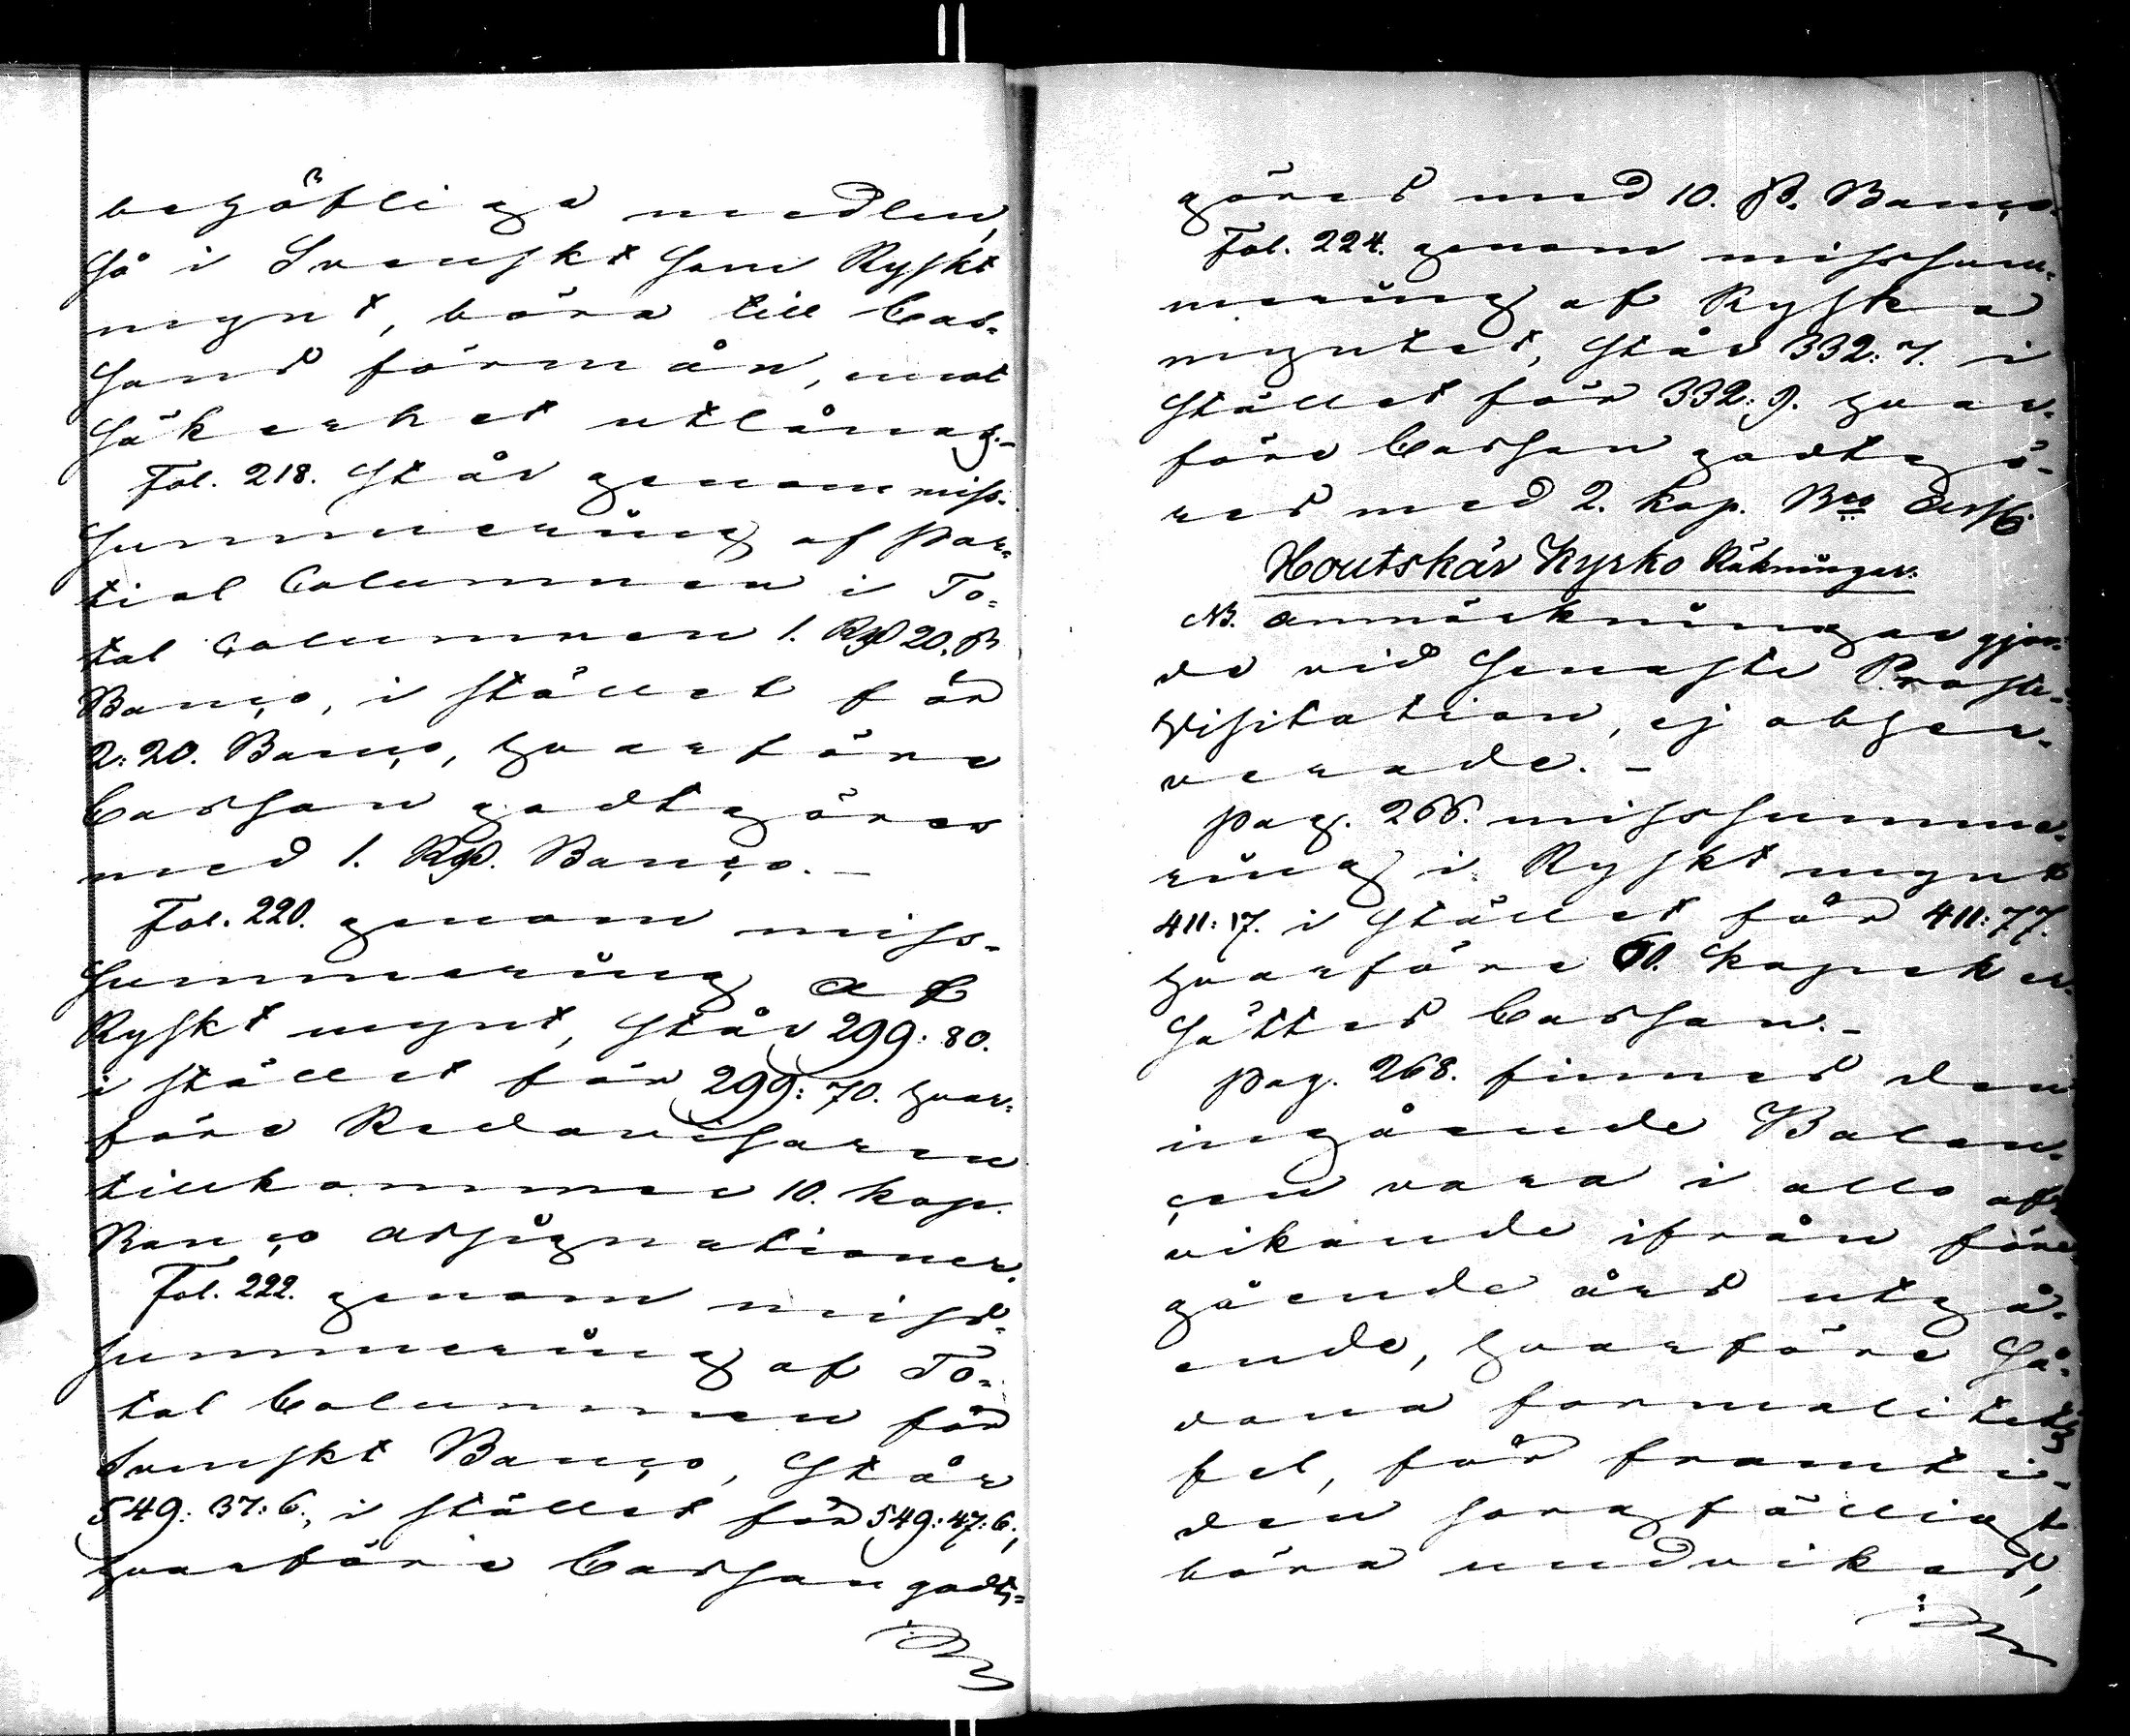 behöfliga medlen,
så i Svenskt som Ryskt
mynt, böra till Cas-
sans förmån, emot
säkerhet utlånas.-
Fol. 218. står genom miss-
summering af Par-
tial Columnen i To-
tal Columnen 1. Rd 20. ß
Banco, i stället för
2: 20. Banco, hvarföre
Cassan godtgöres
med 1. Rd. Banco.-
Fol. 220. genom miss-
summering af
Ryskt mynt, står 299: 80.
i stället för 299: 70. hvar-
före Redovisaren
tillkommer 10. kop.
Banco assignationer.
Fol. 222. genom miss-
summering af To-
tal Columnen för
Svenskt Banco, står
549: 37: 6., i stället för 549: 47: 6.,
hvarföre Cassan godt-
göres med 10. ß. Banco.
Fol. 224. genom misssum-
mering af Ryska
myntet, står 332: 7. i
stället för 332: 9. hvar-
före Cassan godtgö-
res med 2. kop. Bco Ass.
Houtskär Kyrko Räkningar.
NB. anmärkningar gjor-
de vid senaste Prosts-
Visitation, ej obser-
verade.-
Pag. 266. misssumme-
ring i Ryskt mynt
411: 17. i stället för 411: 77.
hvarföre 60. kopek er-
sättes Cassan.-
Pag. 268. finnes den
ingående Balan-
cen vara i allo af-
vikande ifrån före-
gående års utgå-
ende, hvarföre så-
dana formalitets
fel, för framti-
den sorgfälligt
böra undvikas,